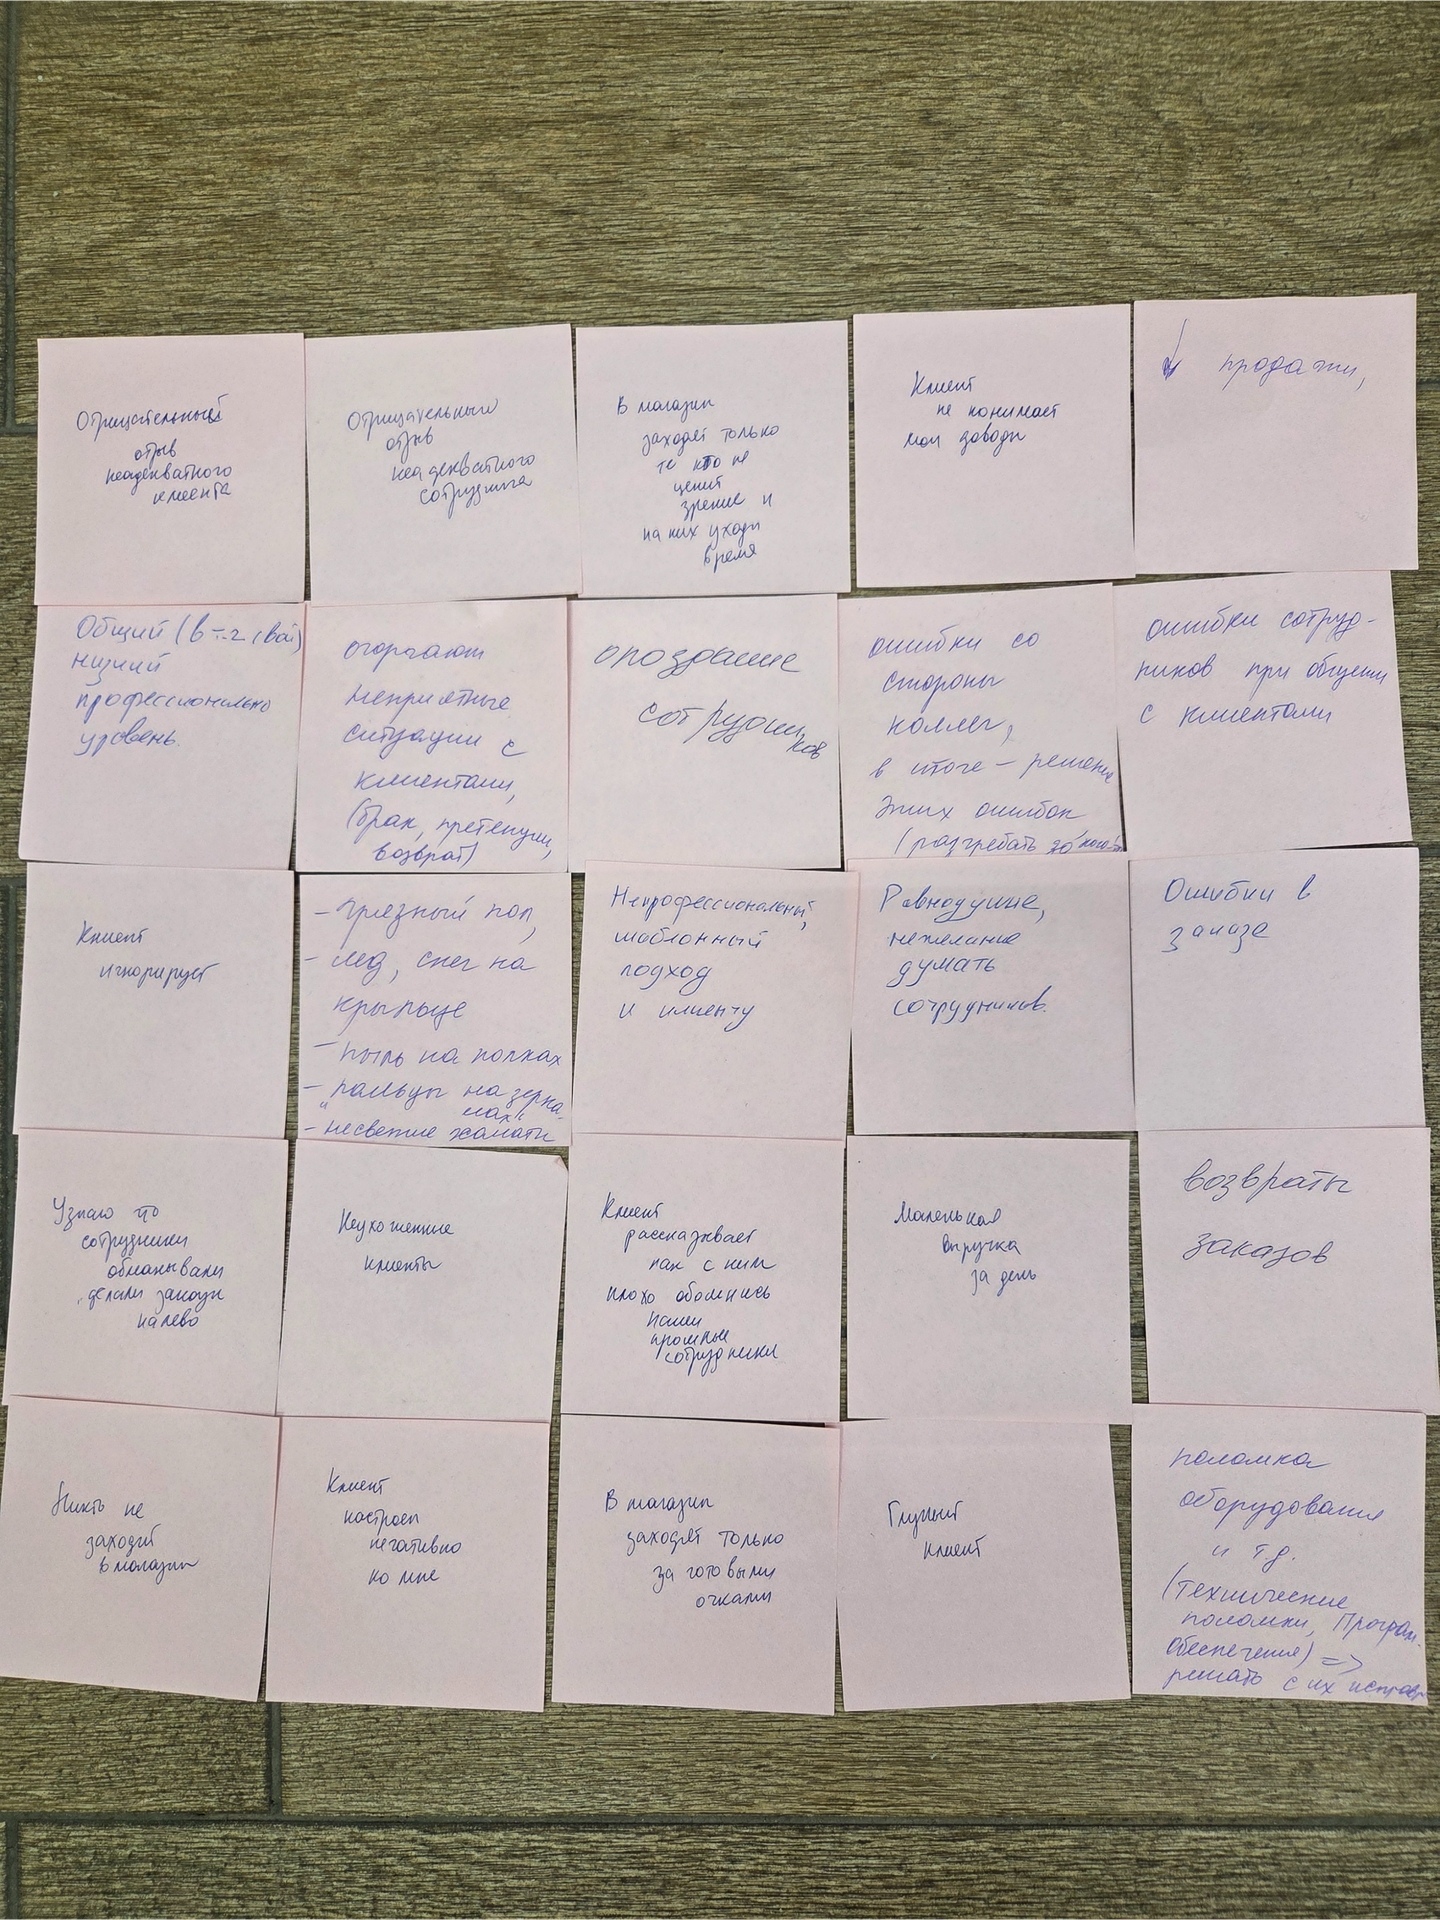 Отрицательный
отзыв
неадекватного
клиента
Отрицательный
отзыв
неадекватного
сотрудника
В магазин
заходят только
те кто не
ценит
зрение и
на них уходи
время
Клиент
не понимает
мои доводы
↓ продажи,
Общий (в т.ч свой)
низкий
профессионально
уровень.
огорчают
неприятные
ситуации с
клиентами,
(брак, претензии,
возврат)
опоздание
сотрудни
ков
ошибки со
стороны
коллег,
в итоге - решение
этих ошибок
(разгребать за кого-то
ошибки сотруд-
ников при общении
с клиентами
Клиент
игнорирует
- грязный пол,
- лед, снег на
крыльце
- пыль на полках
- "пальцы" на зерка-
лах
- несвежие халаты
Непрофессиональный,
шаблонный
подход
к клиенту
Равнодушие,
нежелание
думать
сотрудников.
Ошибки в
заказе
Узнаю что
сотрудники
обманывали
делали заказы
налево
Неухоженные
клиенты
Клиент
рассказывает
как с ним
плохо обошлись
наши
прошлые
сотрудники
Маленькая
выручка
за день
возвраты
заказов
Никто не
заходит
в магазин
Клиент
настроен
негативно
ко мне
В магазин
заходят только
за готовыми
очками
Глупый
клиент
поломка
оборудования
и т.д.
(технические
поломки, Програм.
обеспечения) =>
решать с их исправ